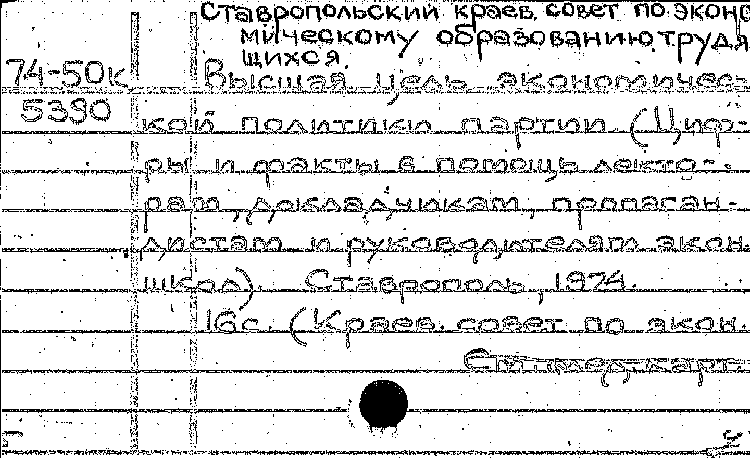 Ставропольский краев. совет по эконо
мическому образованию трудя
щихся.
74-50к Высшая цель экономичес-
5390 кой политики партии. (Циф-
ры и факты в помощь лекто-
рам, докладчикам, пропаган-
дистам и руководителям экон.
школ). Ставрополь, 1974.
16с. (Краев. совет по экон.
См. след. карт.